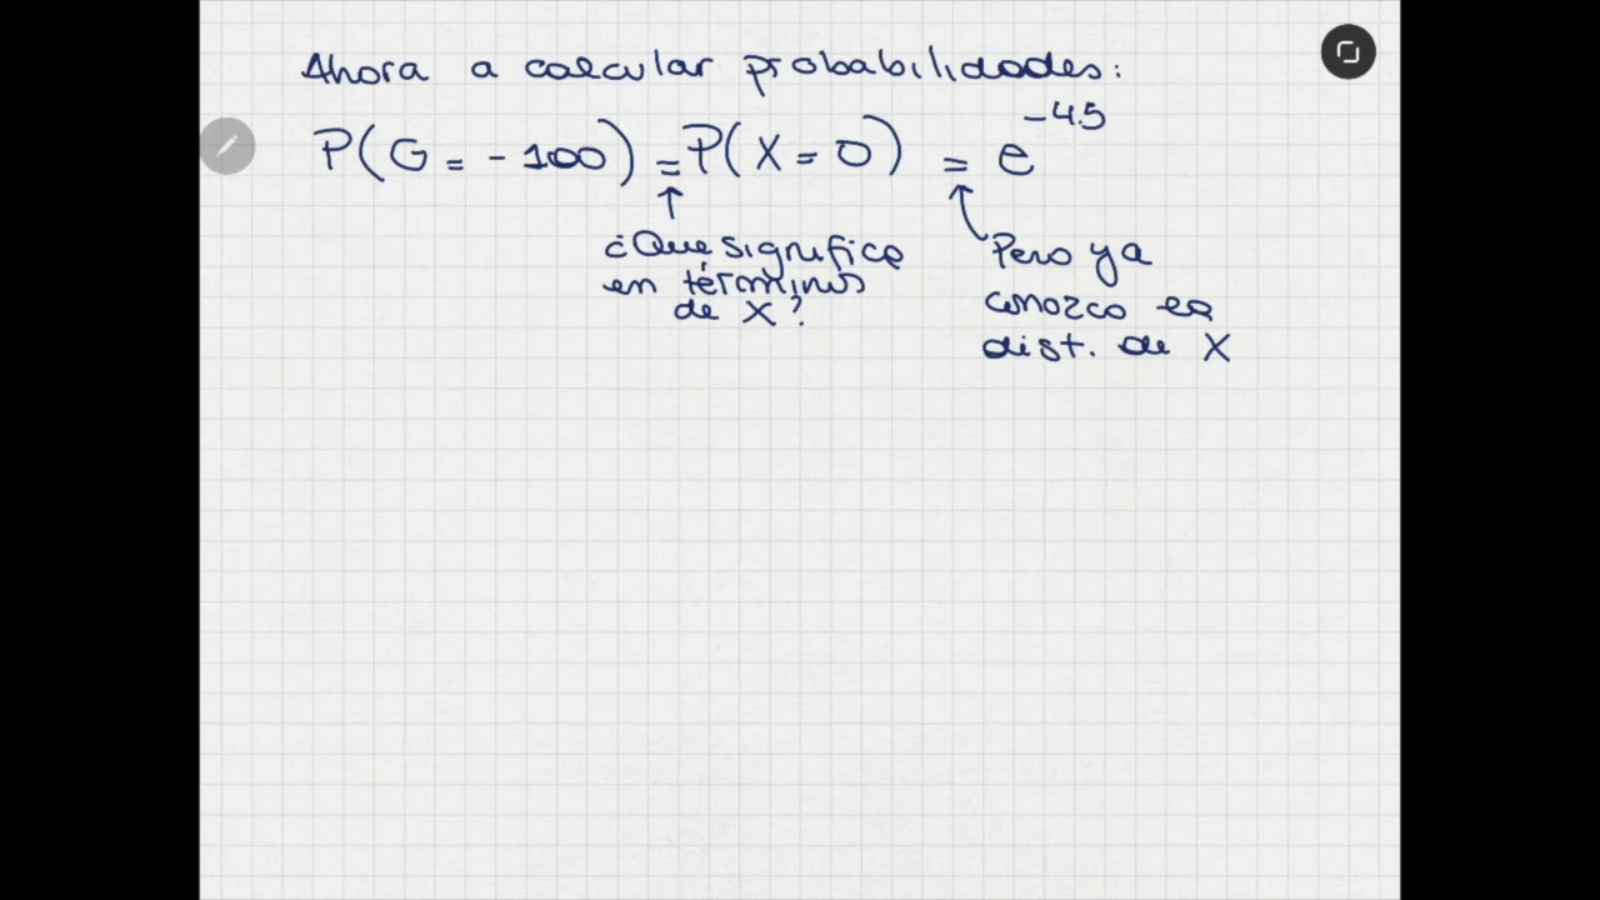 Ahora a calcular probabilidades:
P(G = -100) = P(X = 0) = e^-4.5
¿Que significa
en términos
de X?
Pero ya
conozco la
dist. de X